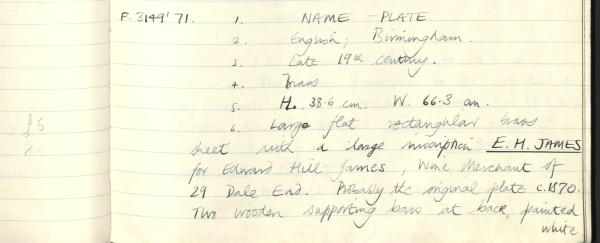 F. 3149'71. 1. NAME-PLATE
2. English; Birmingham.
3. Late 19th century.
4. Brass
5. H. 38.6 cm. W. 66.3 cm.
6. Large flat rectangular brass
sheet with a large inscription E. H. JAMES
for Edward Hill James, Wine Merchant of
29 Dale End. Probably the original plate c.1870.
Two wooden supporting bars at back, painted
white